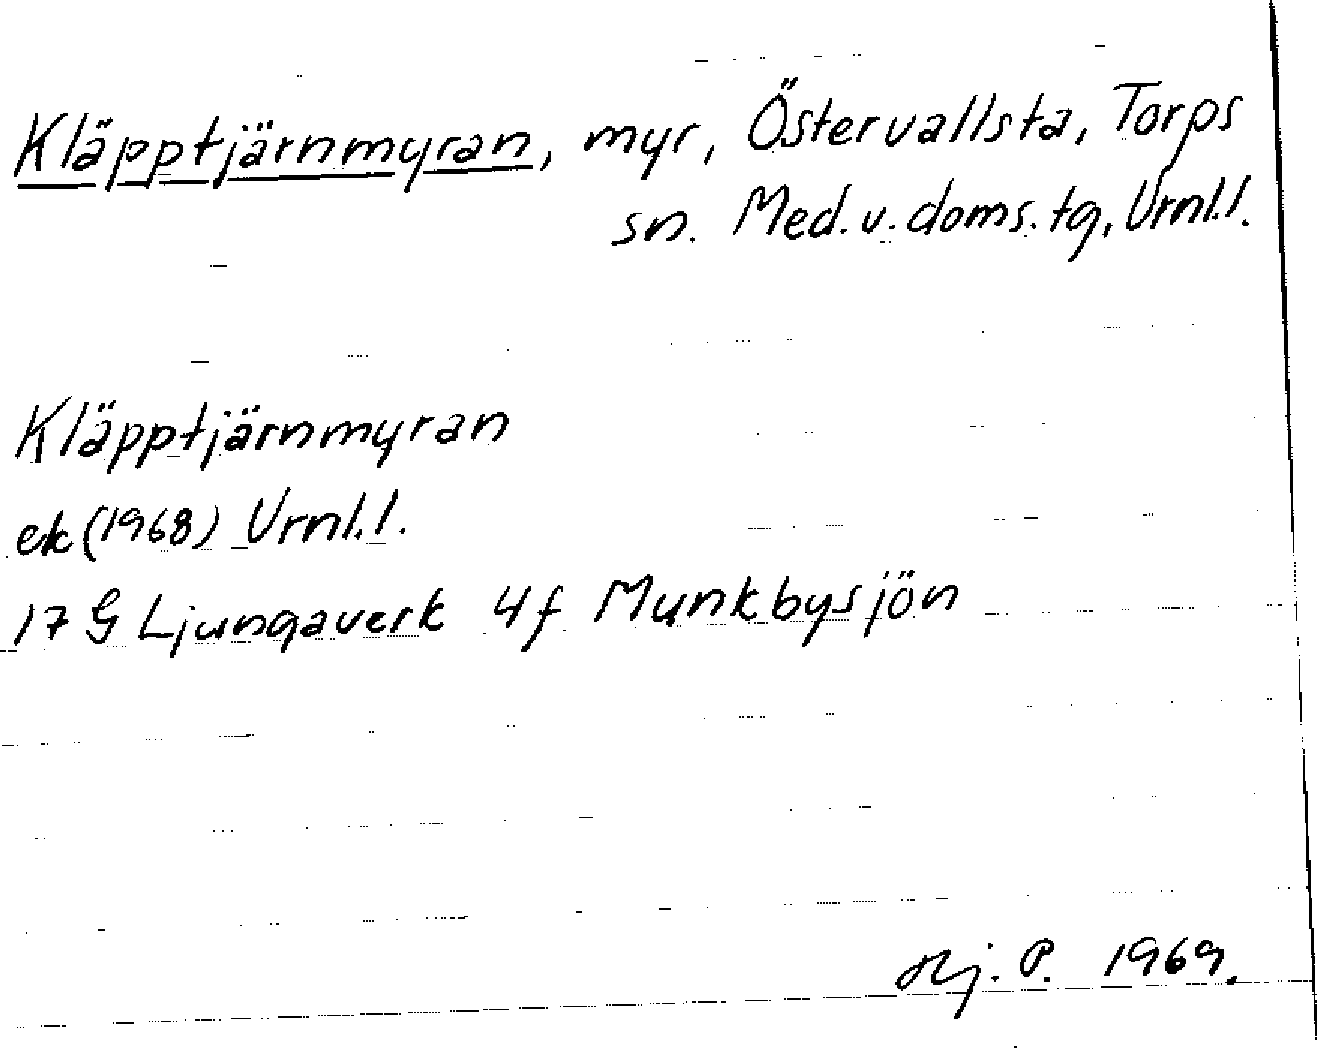 Kläpptjärnmyran, myr, Östervallsta, Torps
sn. Med.v.doms.tg, Vrnl.l.
Kläpptjärnmyran
ek (1968) Vrnl.l.
17 G Ljungaverk 4f Munkbysjön
Hj. P. 1969.